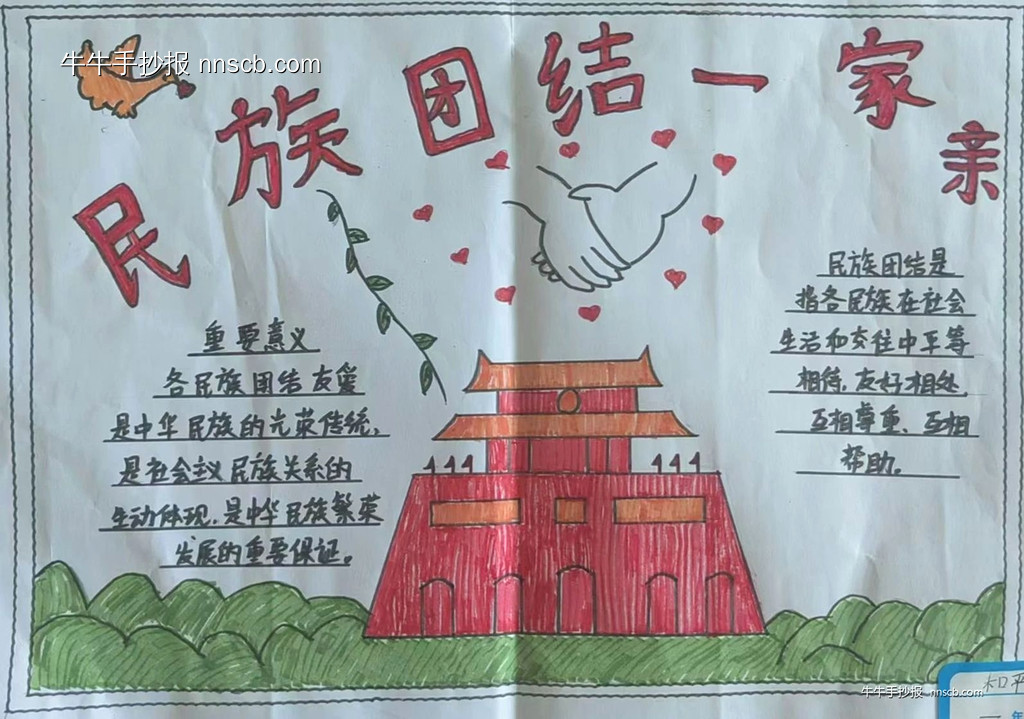 牛牛手抄报 nnscb.com
民族团结一家亲
重要意义
各民族团结友爱
是中华民族的光荣传统,
是社会主义民族关系的
生动体现,是中华民族繁荣
发展的重要保证。
民族团结是
指各民族在社会
生活和交往中平等
相待,友好相处,
互相尊重、互相
帮助。
和平
一年
牛牛手抄报 nnscb.com